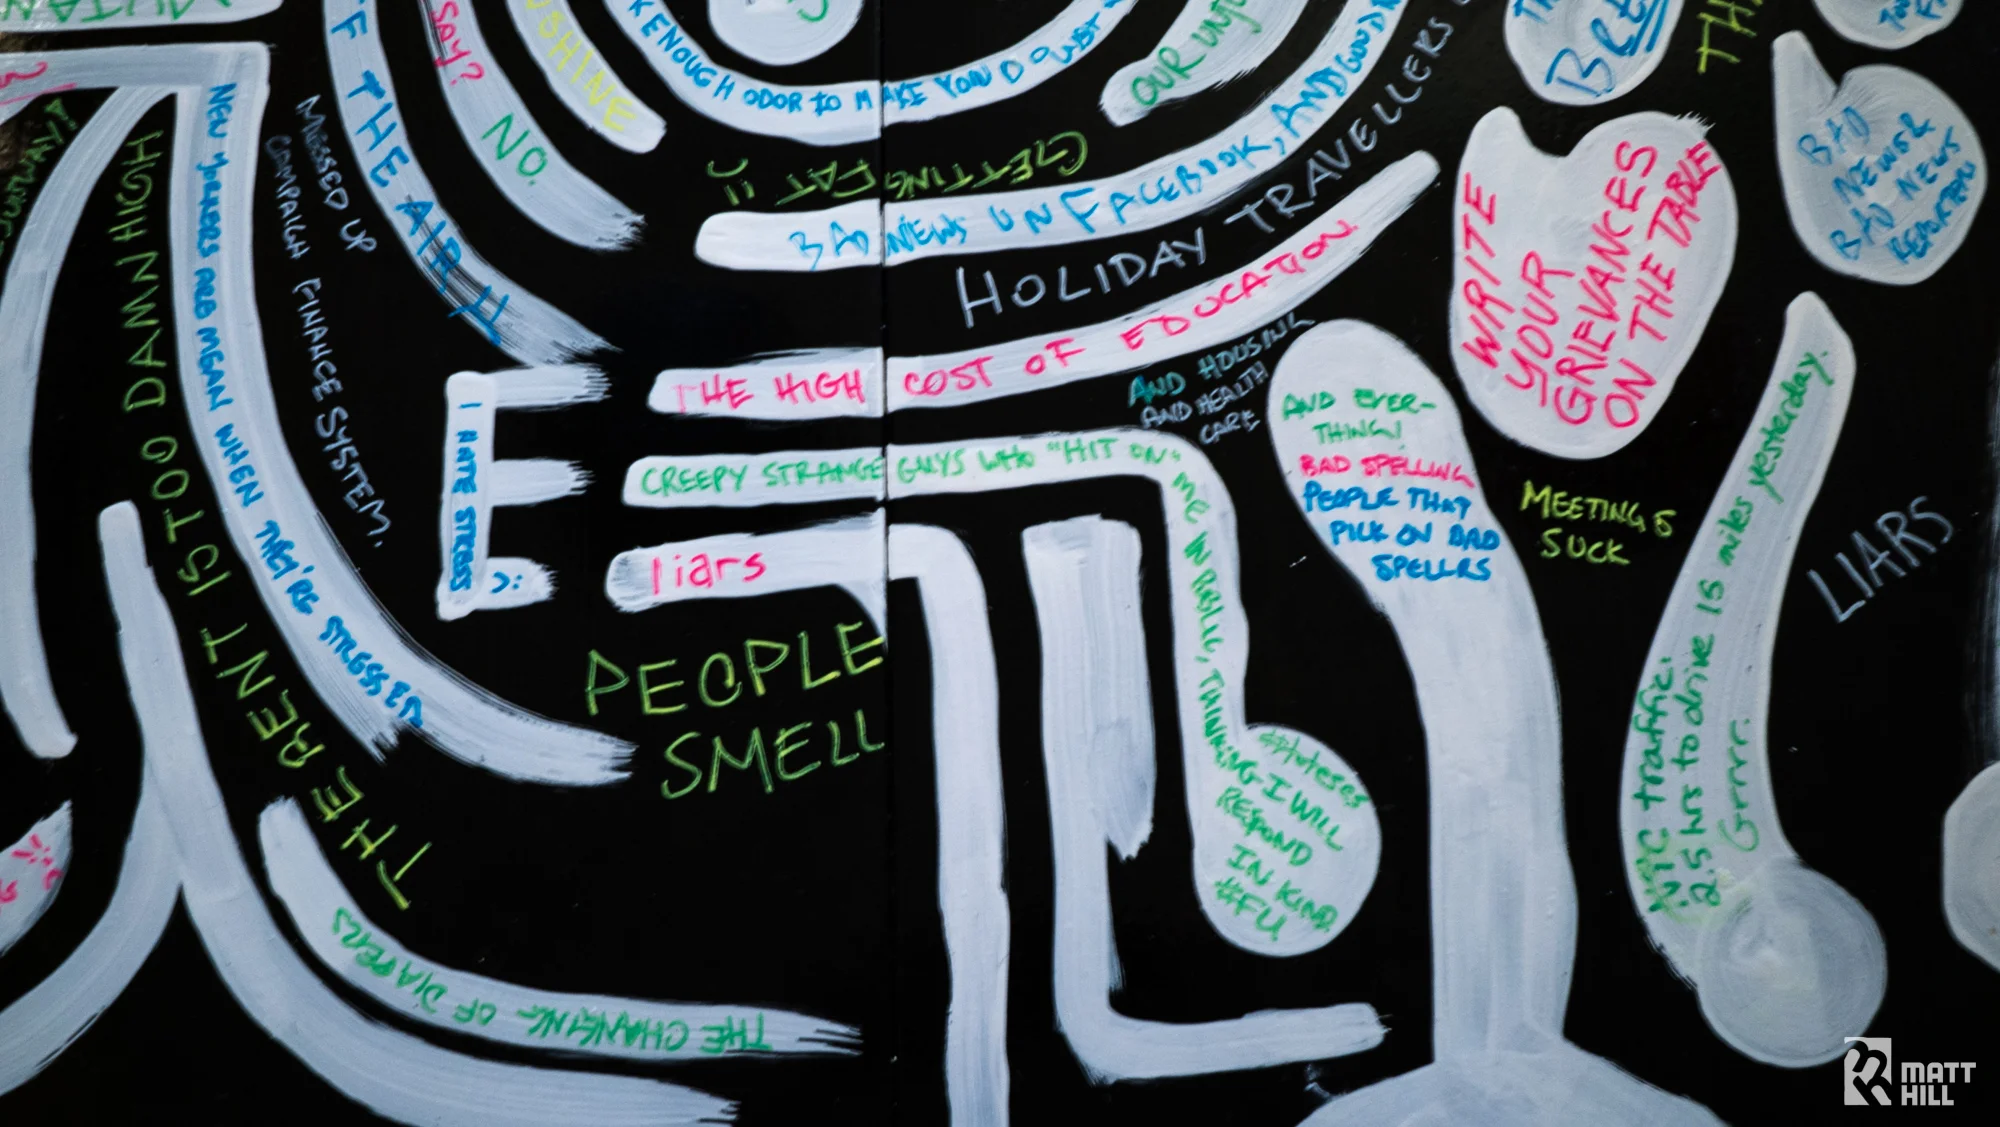 F THE AIRH
SAY?
NO.
SHINE
ENOUGH ODOR TO MAKE YOU DOUBT
OUR
GETTING FAT :)
BAD NEWS ON FACEBOOK, AND GOOD
HOLIDAY TRAVELLERS
THE HIGH COST OF EDUCATION.
AND HOUSING
AND HEALTH
CARE
NEW YORKERS ARE MEAN WHEN THEY'RE STRESSED
MESSED UP
CAMPAIGN FINANCE SYSTEM.
THE RENT IS TOO DAMN HIGH
I HATE STRESS
):
CREEPY STRANGE GUYS WHO "HIT ON" ME IN PUBLIC, THINKING I WILL
RESPOND
IN KIND
#FU
liars
PEOPLE
SMELL
THE CHANGING OF DIAPERS
AND EVER-
THING!
BAD SPELLING
PEOPLE THAT
PICK ON BAD
SPELLRS
WRITE
YOUR
GRIEVANCES
ON THE TABLE
MEETINGS
SUCK
BAD
NEWS &
BAD NEWS
REPORTERS
NYC traffic:
2.5 hrs to drive 15 miles yesterday.
Grrrr.
LIARS
MATT
HILL